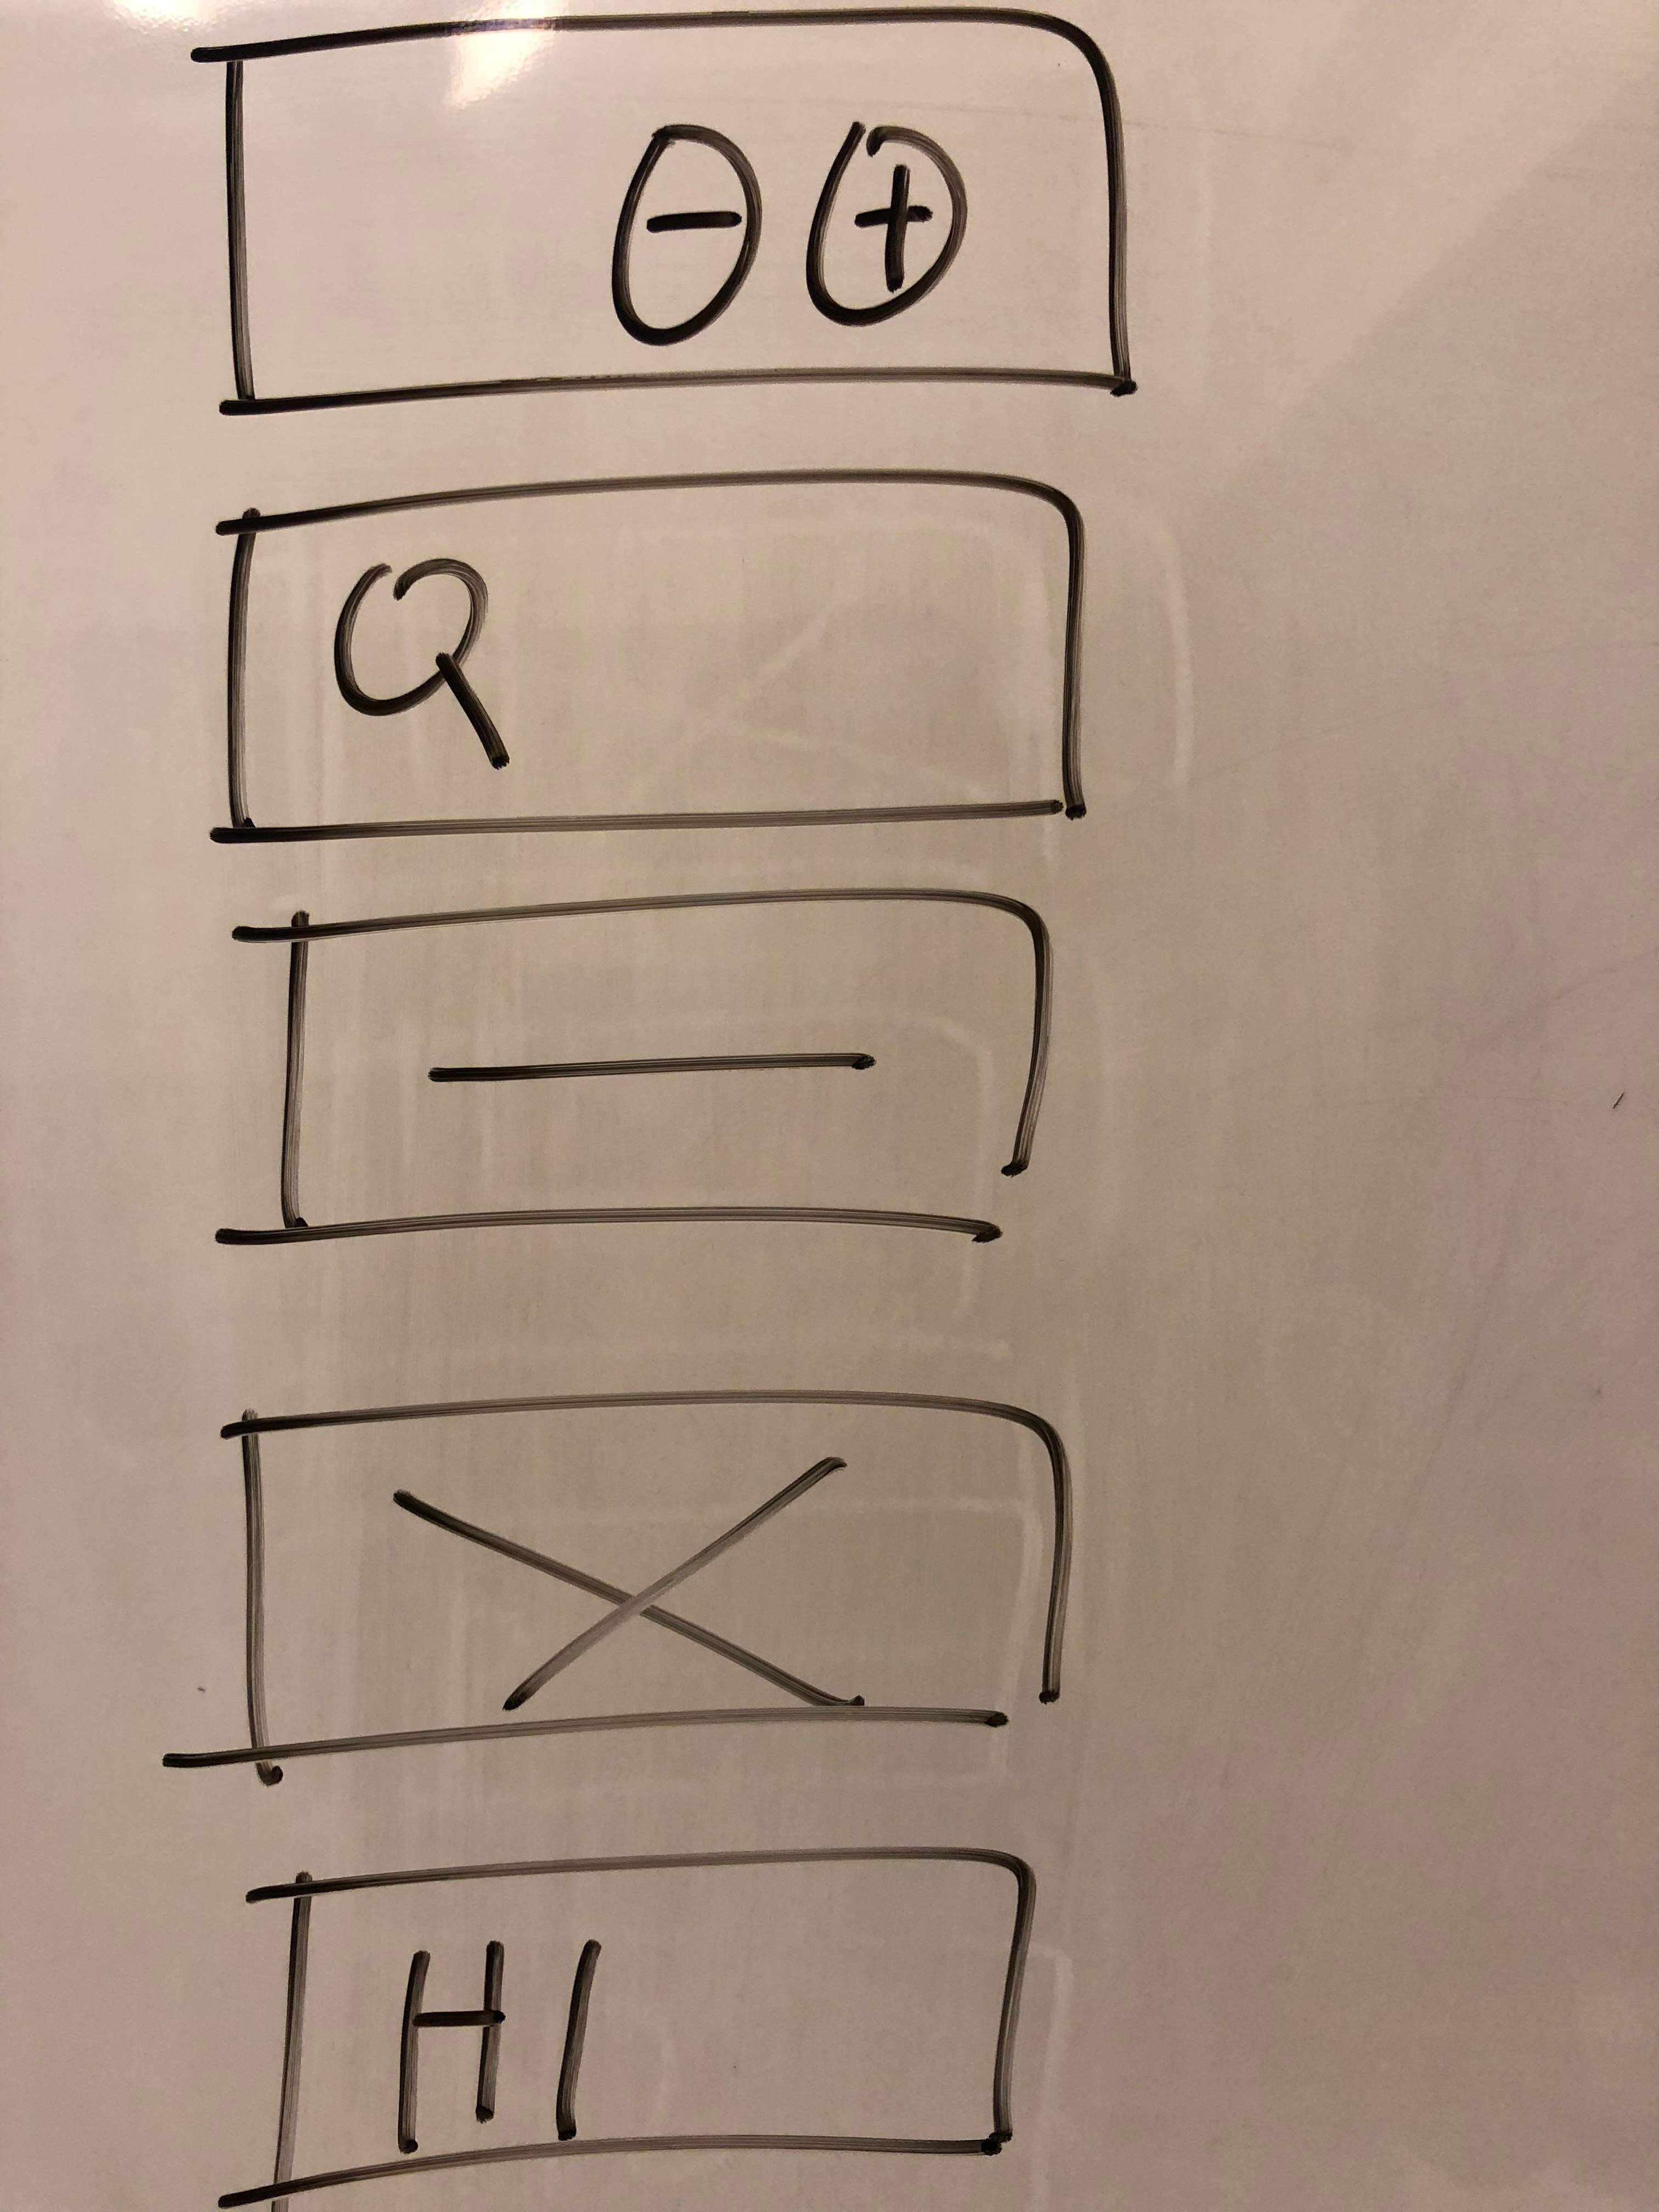 ⊖ ⊕
Q
—
X
HI